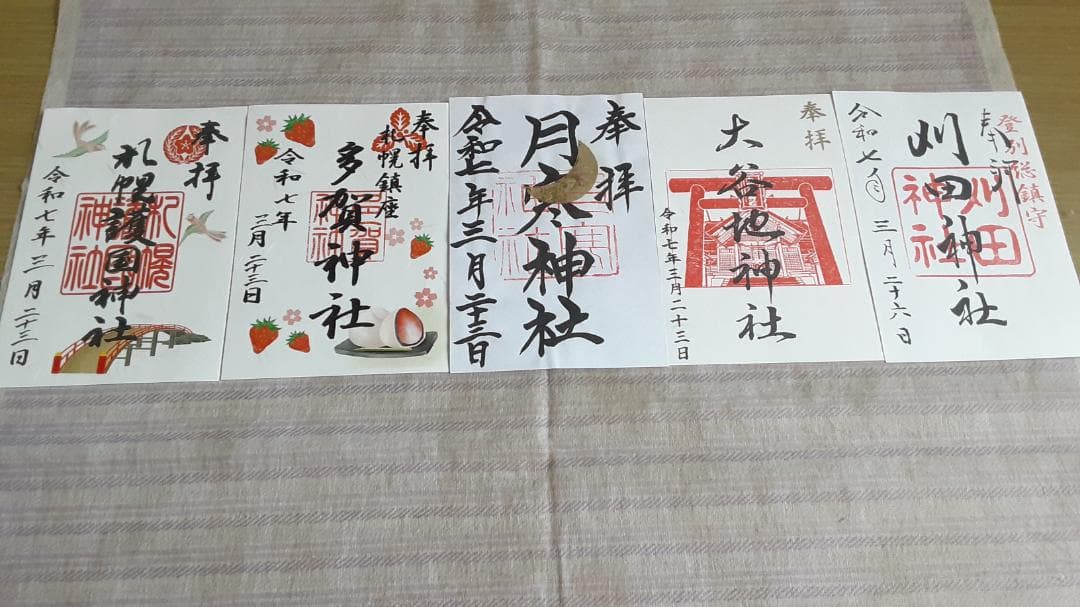 奉拝
札幌護国神社
札幌
神社
令和七年三月二十三日
奉拝
札幌鎮座
多賀神社
令和七年
三月二十三日
奉拝
月寒神社
令和七年三月二十三日
奉拝
大谷地神社
令和七年三月二十三日
登別総鎮守
奉拝
刈田神社
刈田
神社
令和七年
三月二十六日